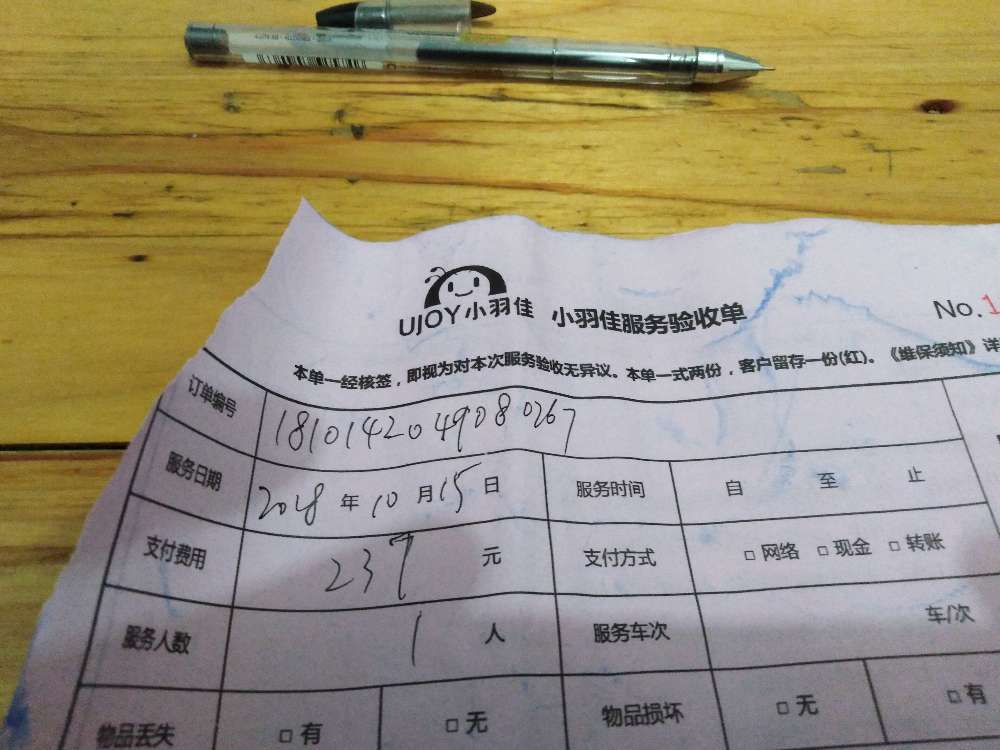 UJOY小羽佳 小羽佳服务验收单 No.1
本单一经核签，即视为对本次服务验收无异议。本单一式两份，客户留存一份(红)。《维保须知》详
订单编号 1810142049080267
服务日期 2018年10月15日 服务时间 自 至 止
支付费用 237 元 支付方式 □网络 □现金 □转账
服务人数 1 人 服务车次 车/次
物品丢失 □有 □无 物品损坏 □无 □有